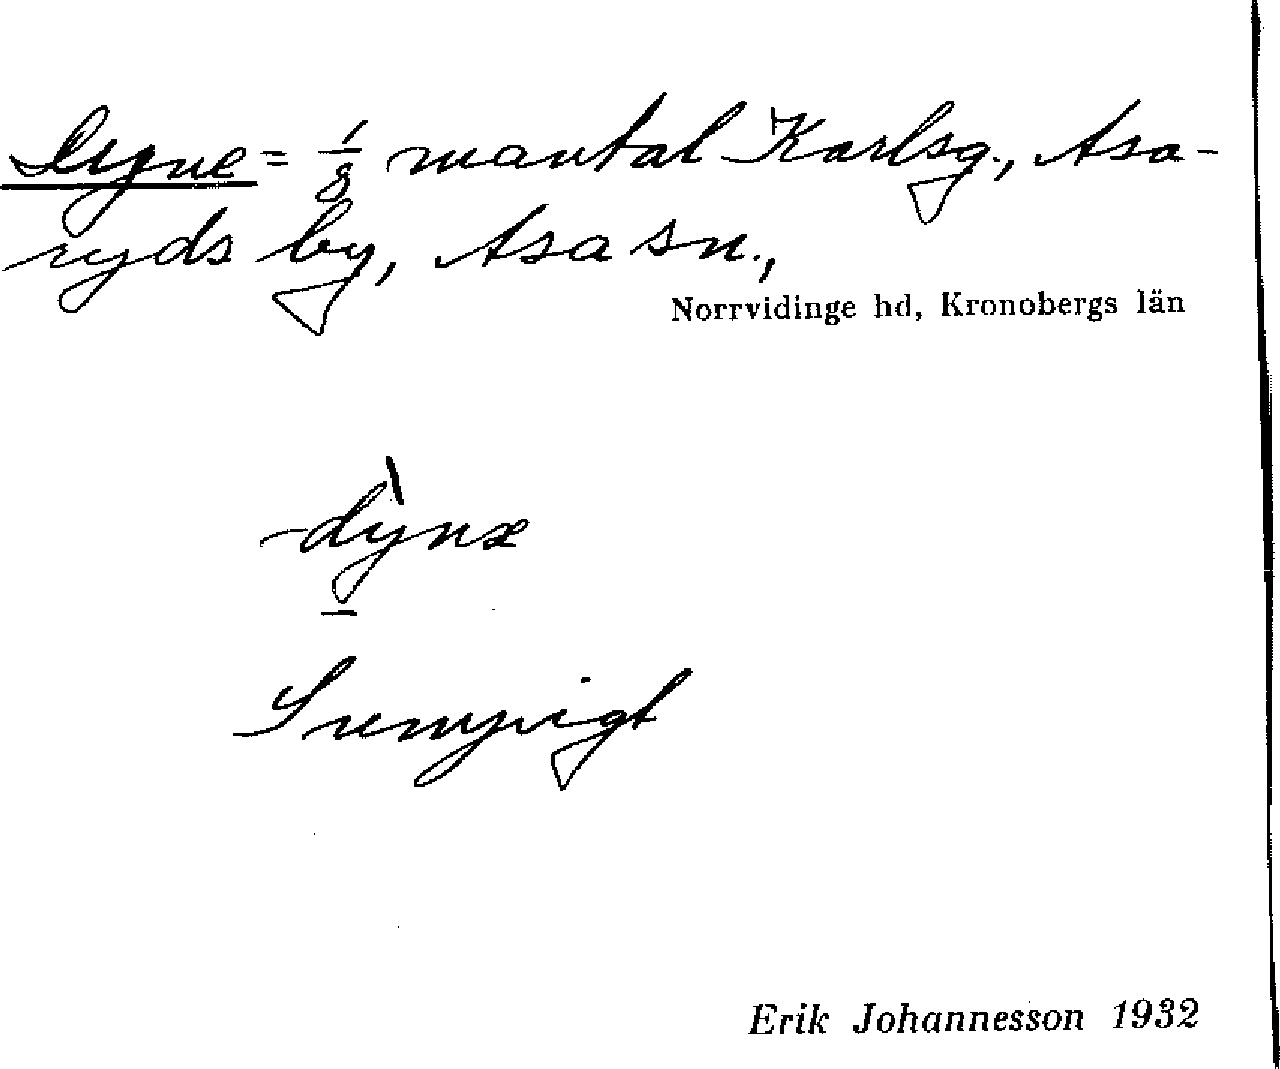 Dyne = 1/8 mantal Karlsg., Asa-
ryds by, Asa sn.,
Norrvidinge hd, Kronobergs län
dỳnæ
Sumpigt
Erik Johannesson 1932